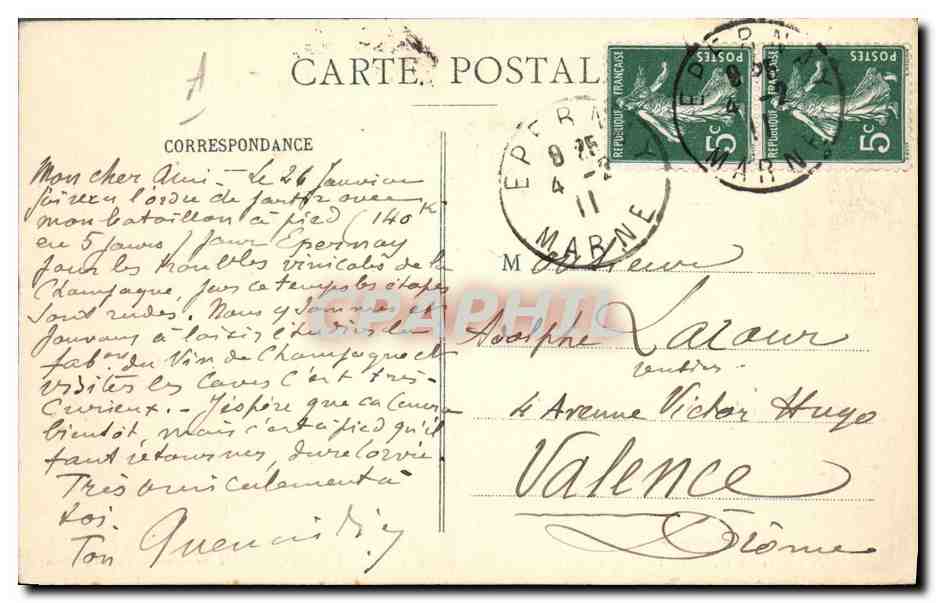 CARTE POSTALE
CORRESPONDANCE
Mon cher Ami - Le 26 Janvier
j'ai reçu l'ordre de partir avec
mon bataillon à pied (140 K
en 5 jours) pour Epernay
pour les troubles vinicoles de la
Champagne, par ce temps les étapes
sont rudes. Nous y sommes et
pouvons à loisir étudier la
fabon du Vin de Champagne et
visiter les Caves c'est très
Curieux. - J'espère que ça
bientôt, mais c'est à pied qu'il
faut retourner, dure corvée
Très amicalement à
toi.
Ton
REPUBLIQUE FRANÇAISE
POSTES
5c
REPUBLIQUE FRANÇAISE
POSTES
5c
EPERNAY
9 25
4 -2
11
MARNE
EPERNAY
4 -2
11
MARNE
Monsieur
Adolphe Lazour
rentier
4 Avenue Victor Hugo
Valence
Drôme
CPAPHIL